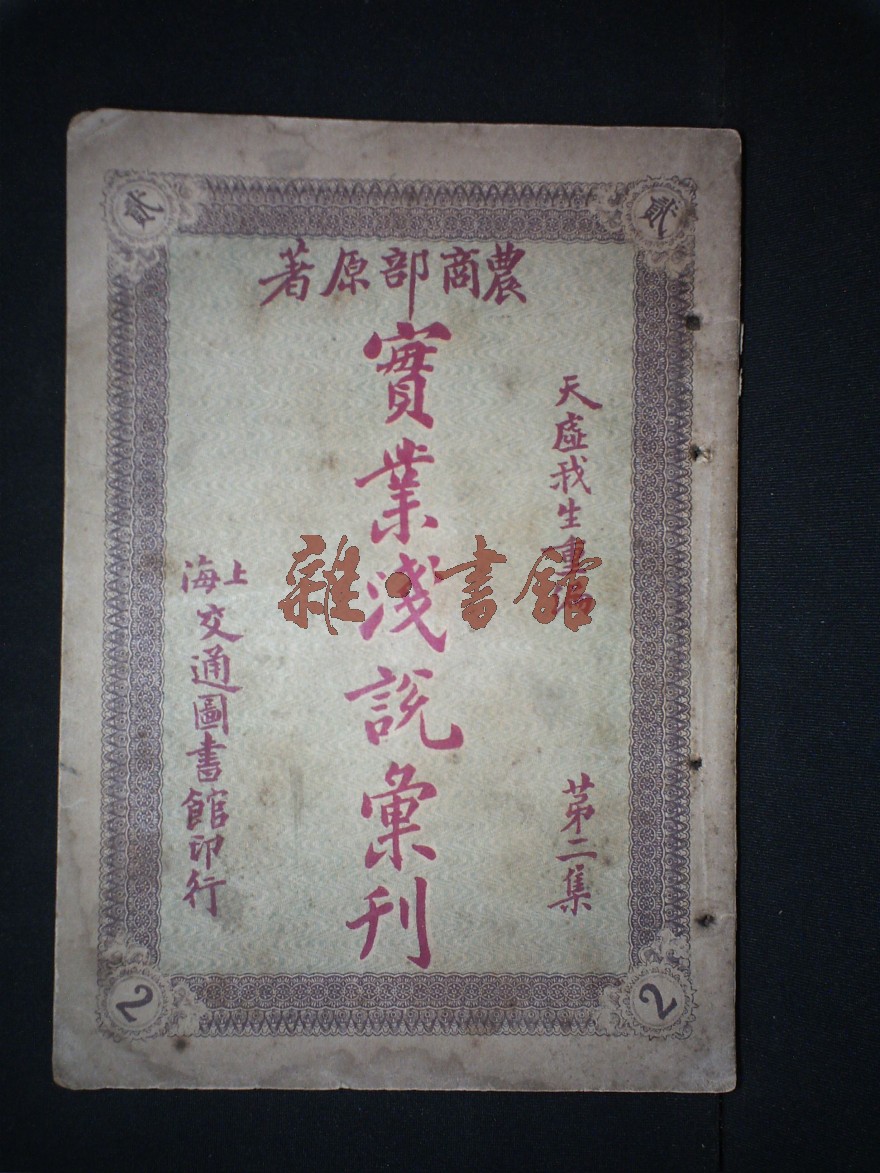 貳
貳
農商部原著
天虛我生重編
第二集
實業淺說彙刊
上海交通圖書館印行
雜·書館
2
2